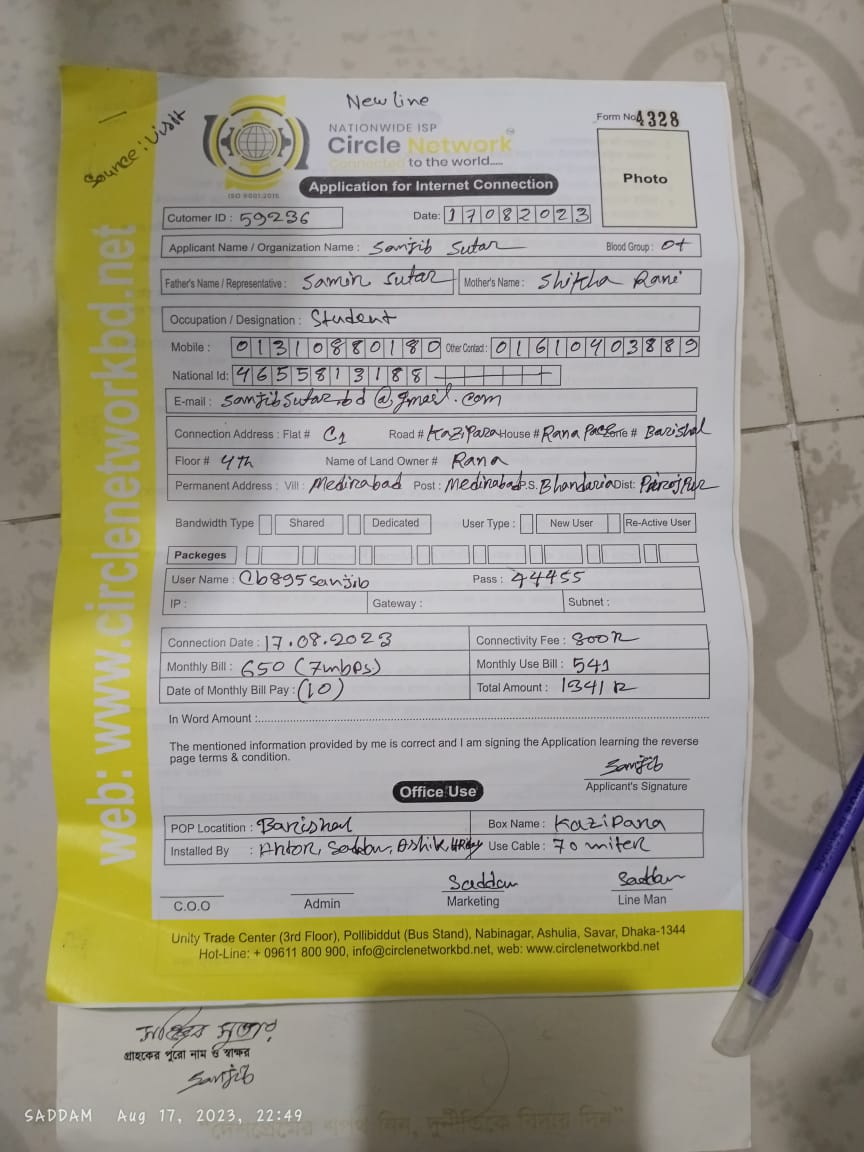 New line
Source: Visit
Form No. 4328
NATIONWIDE ISP
Circle Network
Connected to the world.....
ISO 9001:2015
Application for Internet Connection
Photo
Cutomer ID : 59236
Date: 17082023
Applicant Name / Organization Name : Sanjib Sutar
Blood Group : O+
Father's Name / Representative : Samir Sutar
Mother's Name : Shikha Rani
Occupation / Designation : Student
Mobile : 01310880180 Other Contact : 01610403889
National Id: 4655813188
E-mail : sanjibsutar.bd@gmail.com
Connection Address : Flat # C1 Road # Kazipara House # Rana Zone # Barishal
Floor # 4th Name of Land Owner # Rana
Permanent Address : Vill : Medirabad Post : Medirabad P.S. Bhandaria Dist: Pirojpur
Bandwidth Type Shared Dedicated User Type : New User Re-Active User
Packeges
User Name : Cb895sanjib Pass : 44455
IP : Gateway : Subnet :
Connection Date : 17.08.2023 Connectivity Fee : 800
Monthly Bill : 650 (7mbps) Monthly Use Bill : 541
Date of Monthly Bill Pay : (10) Total Amount : 1341
In Word Amount :
The mentioned information provided by me is correct and I am signing the Application learning the reverse
page terms & condition.
Sanjib
Applicant's Signature
Office Use
POP Locatition : Barishal Box Name : Kazipara
Installed By : Antor, Saddam, Ashik, Use Cable : 70 miter
Saddam Saddam
C.O.O Admin Marketing Line Man
Unity Trade Center (3rd Floor), Pollibiddut (Bus Stand), Nabinagar, Ashulia, Savar, Dhaka-1344
Hot-Line: + 09611 800 900, info@circlenetworkbd.net, web: www.circlenetworkbd.net
web: www.circlenetworkbd.net
সঞ্জিব সুতার
গ্রাহকের পুরো নাম ও স্বাক্ষর
Sanjib
SADDAM Aug 17, 2023, 22:49